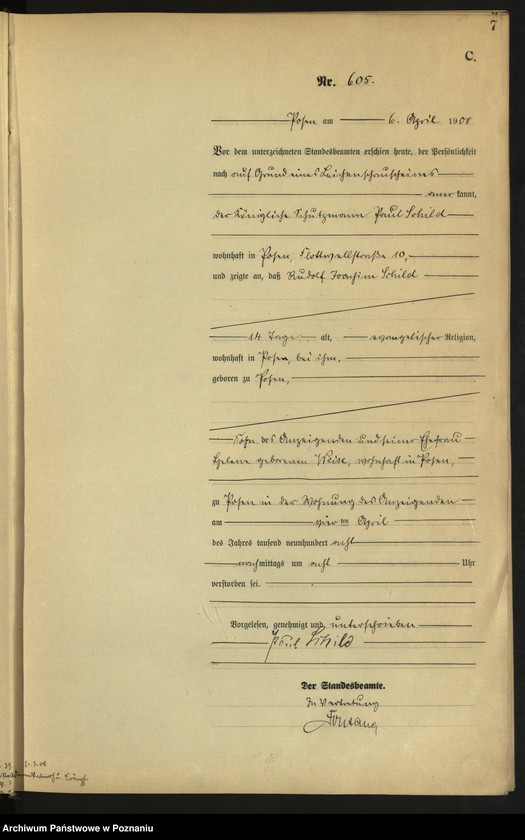 7
C.
Nr. 605.
Posen am 6. April 1908
Vor dem unterzeichneten Standesbeamten erschien heute, der Persönlichkeit
nach auf Grund eines Leichenschauscheines
anerkannt,
der Königliche Schutzmann Paul Schild
wohnhaft in Posen, Flottwellstraße 10,
und zeigte an, daß Rudolf Joachim Schild
14 Tage alt, evangelischer Religion,
wohnhaft in Posen, bei ihm,
geboren zu Posen,
Sohn des Anzeigenden und seiner Ehefrau
Helene geborenen Weise, wohnhaft in Posen,
zu Posen in der Wohnung des Anzeigenden
am vierten April
des Jahres tausend neunhundert acht
nachmittags um acht Uhr
verstorben sei.
Vorgelesen, genehmigt und unterschrieben
Paul Schild
Der Standesbeamte.
In Vertretung
21.3.08
Archiwum Państwowe w Poznaniu